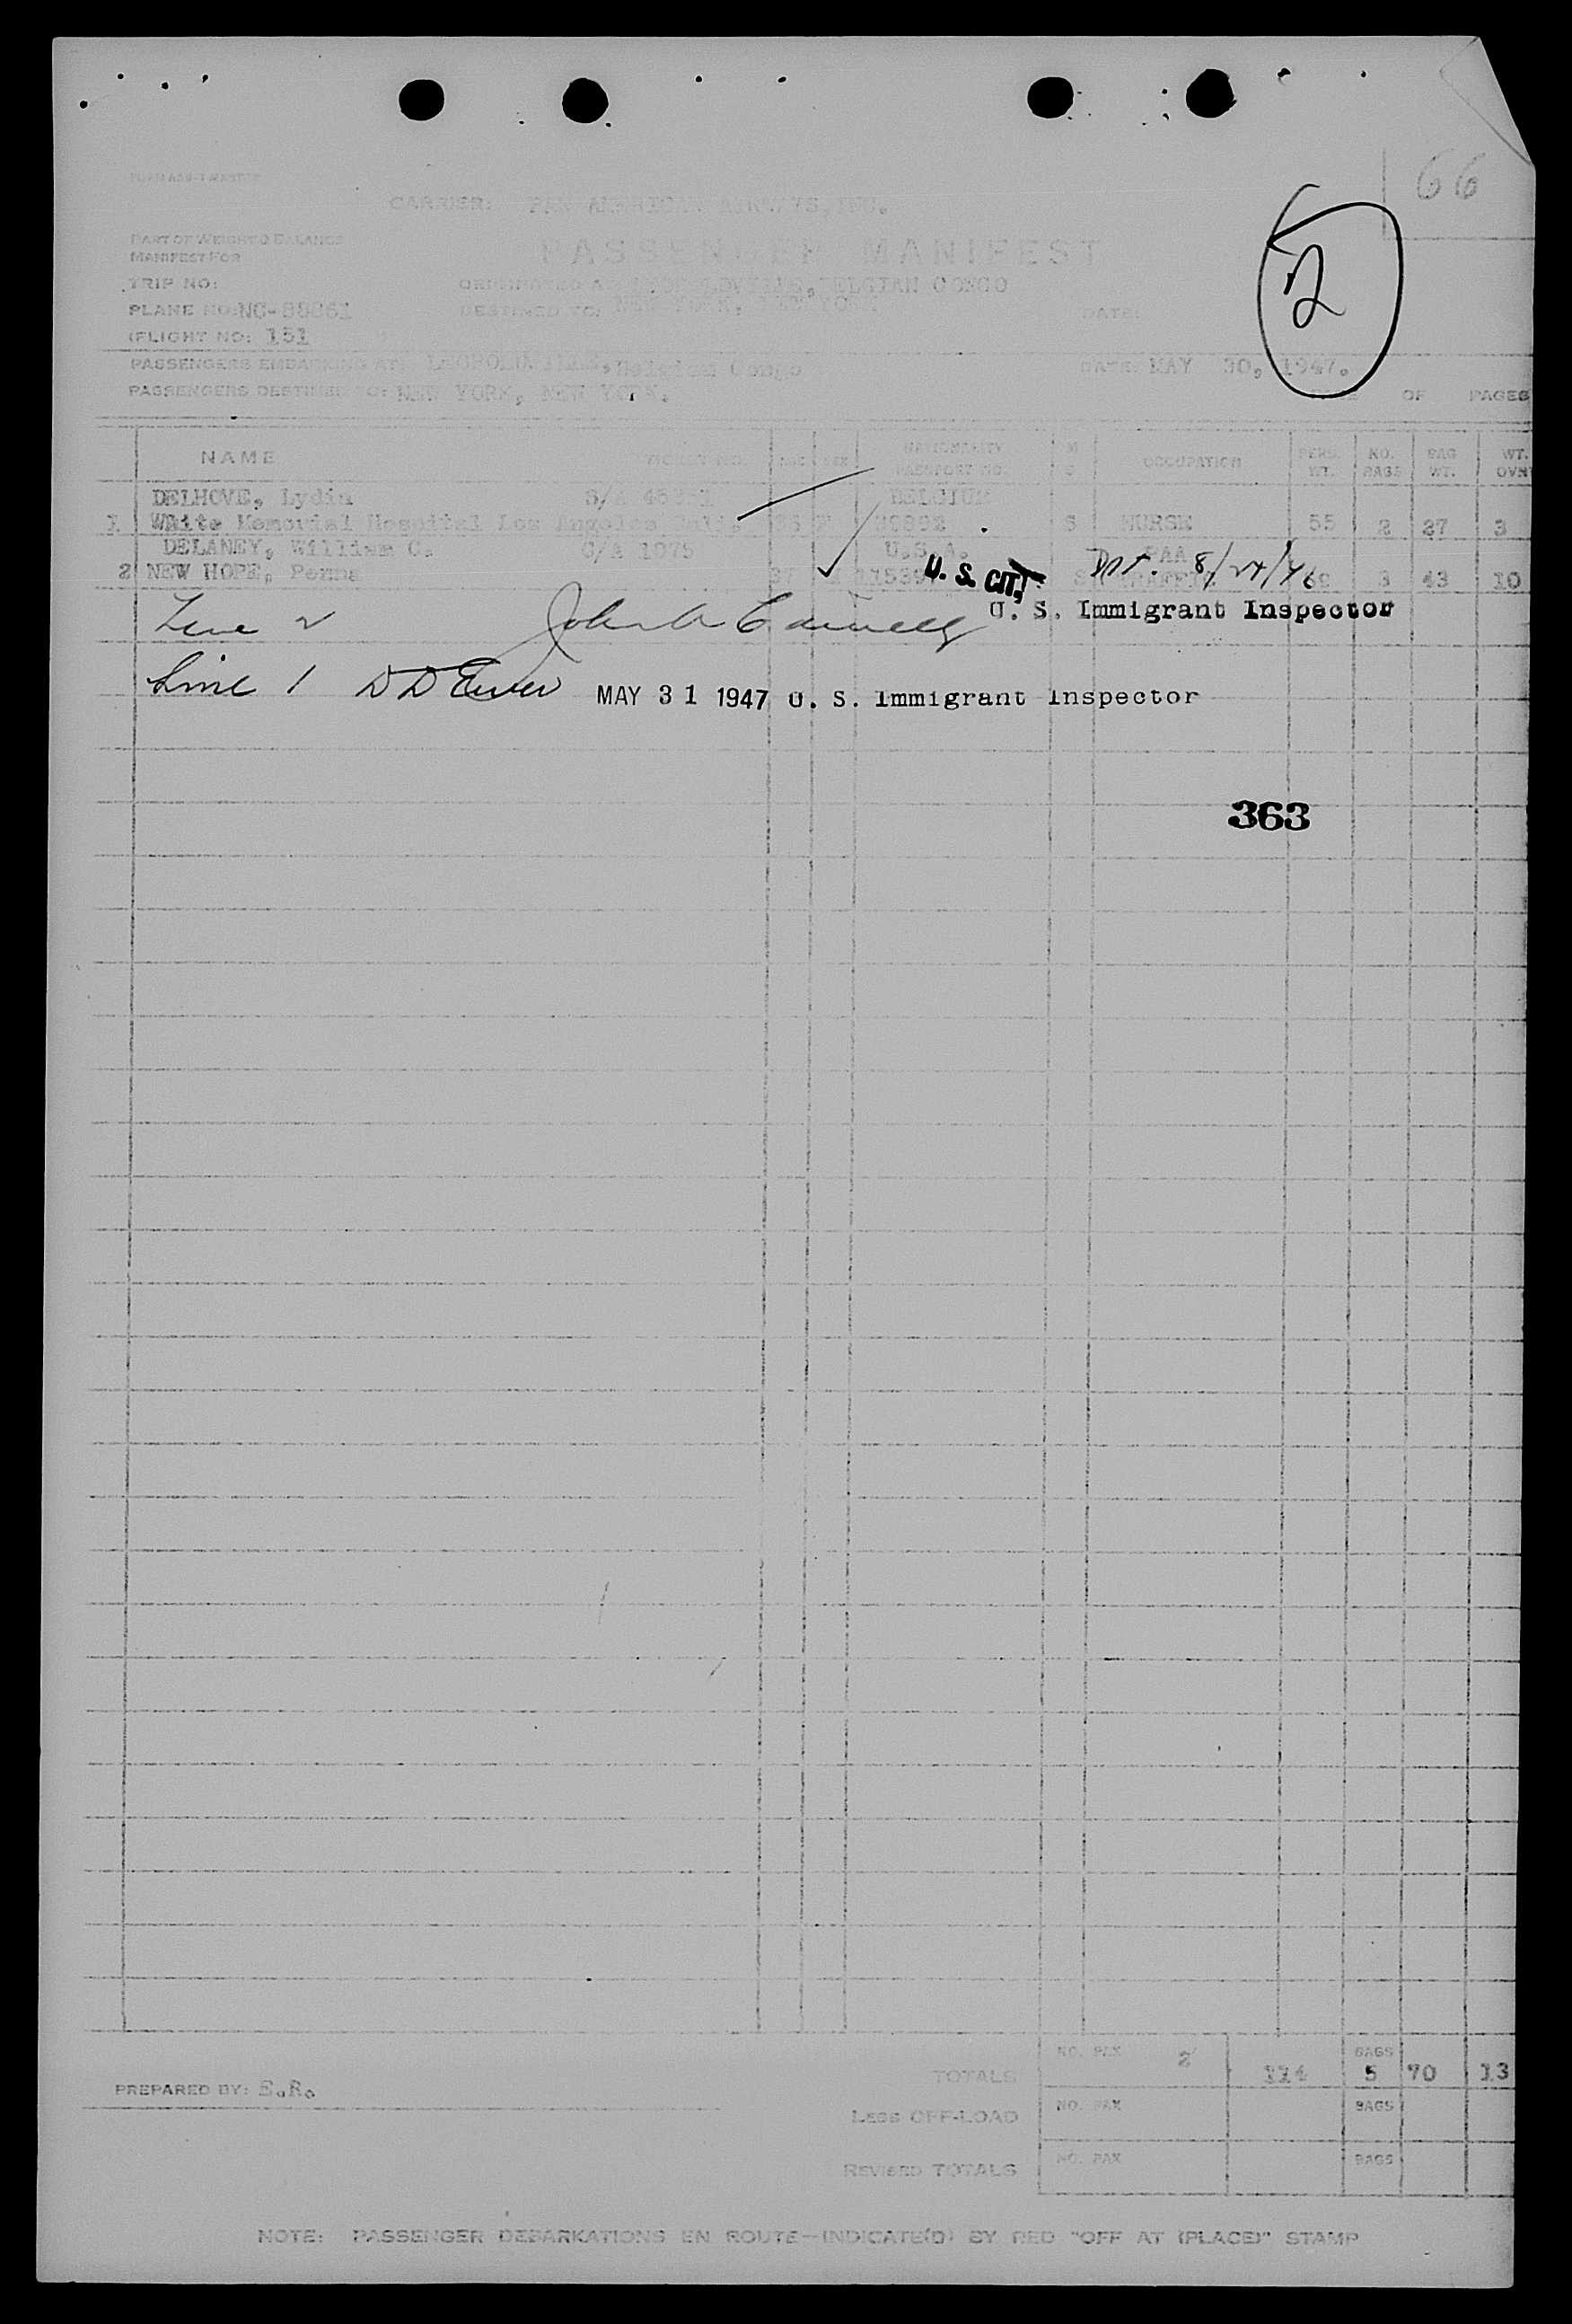 66
CARRIER: PAN AMERICAN AIRWAYS, INC.
PART OF WEIGHT & BALANCE
MANIFEST FOR
PASSENGER MANIFEST
2
TRIP NO:
ORIGINATED AT: LEOPOLDVILLE, BELGIAN CONGO
PLANE NO: NC-88861
DESTINED TO: NEW YORK, NEW YORK
DATE:
FLIGHT NO: 151
PASSENGERS EMBARKING AT: LEOPOLDVILLE, Belgian Congo
DATE: MAY 30, 1947.
PASSENGERS DESTINED TO: NEW YORK, NEW YORK.
PAGE OF PAGES
NAME TICKET NO. AGE SEX NATIONALITY PASSPORT NO. M S OCCUPATION PERS. WT. NO. BAGS BAG WT. WT. OVR
DELHOVE, Lydia S/A BELGIUM
1 White Memorial Hospital Los Angeles Calif. S NURSE 55 2 27 3
DELANEY, William C. C/A 1075 U.S.A. PAA
2 NEW HOPE, Penna 37 S TRAFFIC 3 43 10
U. S. CIT. 8/24/46
U. S. Immigrant Inspector
Line 2
Line 1 MAY 31 1947 U. S. Immigrant Inspector
363
TOTALS NO. PAX 2 114 BAGS 5 70 13
PREPARED BY: E.R.
LESS OFF-LOAD NO. PAX BAGS
REVISED TOTALS NO. PAX BAGS
NOTE: PASSENGER DEBARKATIONS EN ROUTE—INDICATE(D) BY RED "OFF AT (PLACE)" STAMP